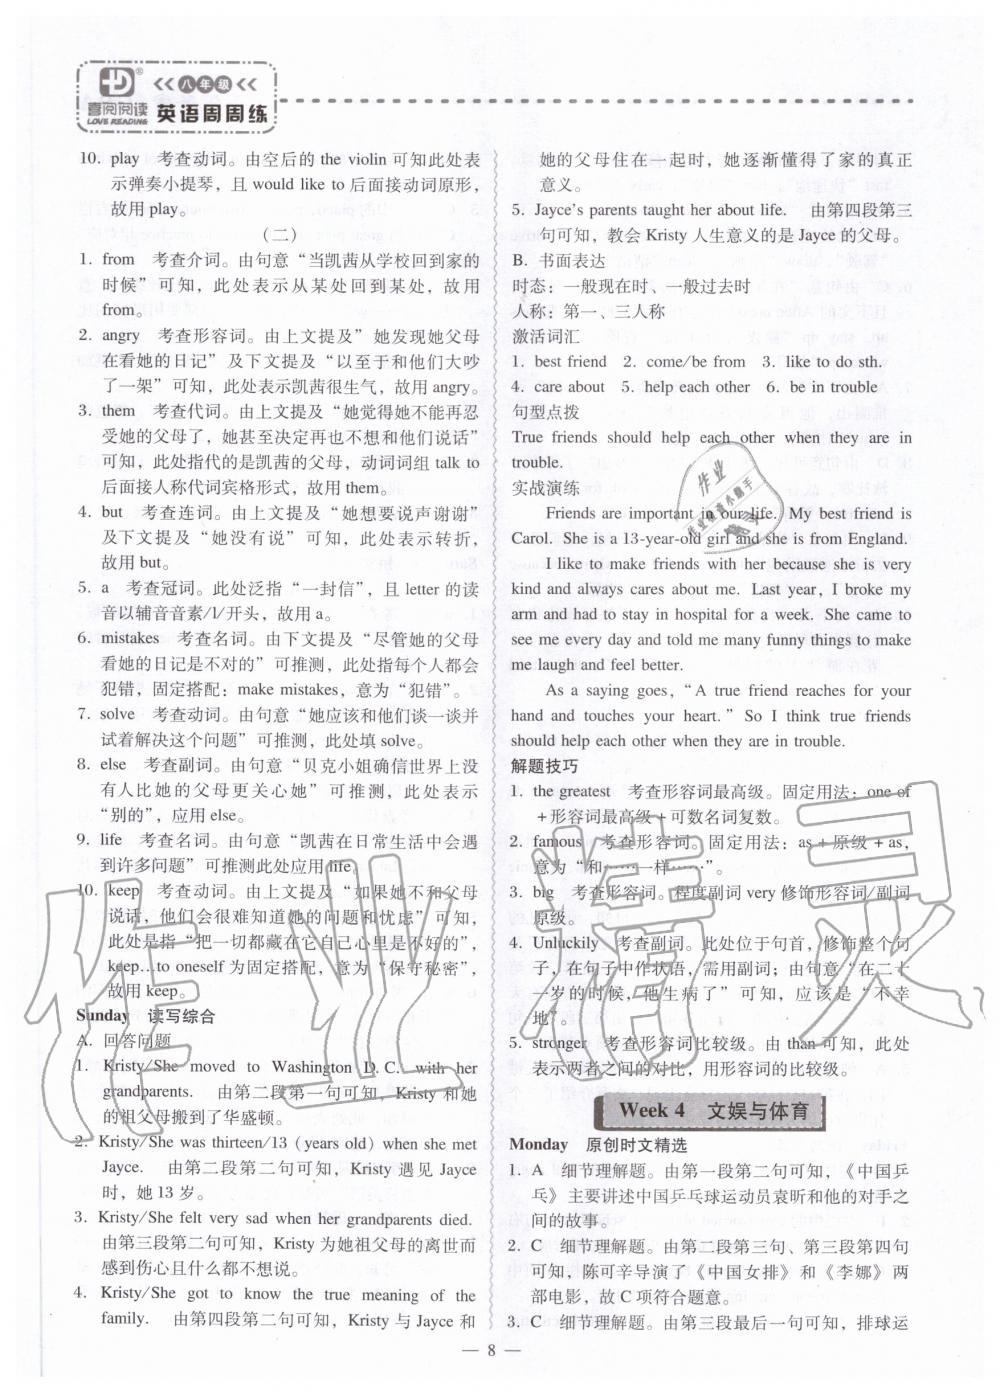 喜阅阅读
LOVE READING
八年级
英语周周练
10. play 考查动词。由空后的 the violin 可知此处表
示弹奏小提琴，且 would like to 后面接动词原形，
故用 play。
（二）
1. from 考查介词。由句意“当凯茜从学校回到家的
时候”可知，此处表示从某处回到某处，故用
from。
2. angry 考查形容词。由上文提及“她发现她父母
在看她的日记”及下文提及“以至于和他们大吵
了一架”可知，此处表示凯茜很生气，故用 angry。
3. them 考查代词。由上文提及“她觉得她不能再忍
受她的父母了，她甚至决定再也不想和他们说话”
可知，此处指代的是凯茜的父母，动词词组 talk to
后面接人称代词宾格形式，故用 them。
4. but 考查连词。由上文提及“她想要说声谢谢”
及下文提及“她没有说”可知，此处表示转折，
故用 but。
5. a 考查冠词。此处泛指“一封信”，且 letter 的读
音以辅音音素/l/开头，故用 a。
6. mistakes 考查名词。由下文提及“尽管她的父母
看她的日记是不对的”可推测，此处指每个人都会
犯错，固定搭配：make mistakes，意为“犯错”。
7. solve 考查动词。由句意“她应该和他们谈一谈并
试着解决这个问题”可推测，此处填 solve。
8. else 考查副词。由句意“贝克小姐确信世界上没
有人比她的父母更关心她”可推测，此处表示
“别的”，应用 else。
9. life 考查名词。由句意“凯茜在日常生活中会遇
到许多问题”可推测此处应用 life。
10. keep 考查动词。由上文提及“如果她不和父母
说话，他们会很难知道她的问题和忧虑”可知，
此处是指“把一切都藏在它自己心里是不好的”，
keep…to oneself 为固定搭配，意为“保守秘密”，
故用 keep。
Sunday 读写综合
A. 回答问题
1. Kristy/She moved to Washington D. C. with her
grandparents. 由第二段第一句可知，Kristy 和她
的祖父母搬到了华盛顿。
2. Kristy/She was thirteen/13 (years old) when she met
Jayce. 由第二段第二句可知，Kristy 遇见 Jayce
时，她 13 岁。
3. Kristy/She felt very sad when her grandparents died.
由第三段第二句可知，Kristy 为她祖父母的离世而
感到伤心且什么都不想说。
4. Kristy/She got to know the true meaning of the
family. 由第四段第二句可知，Kristy 与 Jayce 和
她的父母住在一起时，她逐渐懂得了家的真正
意义。
5. Jayce's parents taught her about life. 由第四段第三
句可知，教会 Kristy 人生意义的是 Jayce 的父母。
B. 书面表达
时态：一般现在时、一般过去时
人称：第一、三人称
激活词汇
1. best friend 2. come/be from 3. like to do sth.
4. care about 5. help each other 6. be in trouble
句型点拨
True friends should help each other when they are in
trouble.
实战演练
Friends are important in our life. My best friend is
Carol. She is a 13-year-old girl and she is from England.
I like to make friends with her because she is very
kind and always cares about me. Last year, I broke my
arm and had to stay in hospital for a week. She came to
see me every day and told me many funny things to make
me laugh and feel better.
As a saying goes, “A true friend reaches for your
hand and touches your heart.” So I think true friends
should help each other when they are in trouble.
解题技巧
1. the greatest 考查形容词最高级。固定用法：one of
＋形容词最高级＋可数名词复数。
2. famous 考查形容词。固定用法：as＋原级＋as，
意为“和……一样……”。
3. big 考查形容词。程度副词 very 修饰形容词/副词
原级。
4. Unluckily 考查副词。此处位于句首，修饰整个句
子，在句子中作状语，需用副词；由句意“在二十
一岁的时候，他生病了”可知，应该是“不幸
地”。
5. stronger 考查形容词比较级。由 than 可知，此处
表示两者之间的对比，用形容词的比较级。
Week 4 文娱与体育
Monday 原创时文精选
1. A 细节理解题。由第一段第二句可知，《中国乒
乓》主要讲述中国乒乓球运动员袁昕和他的对手之
间的故事。
2. C 细节理解题。由第二段第三句、第三段第四句
可知，陈可辛导演了《中国女排》和《李娜》两
部电影，故 C 项符合题意。
3. C 细节理解题。由第三段最后一句可知，排球运
— 8 —
作业精灵